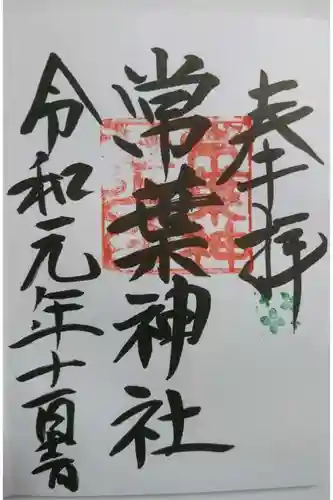 奉拝
常葉神社
令和元年十一月吉日